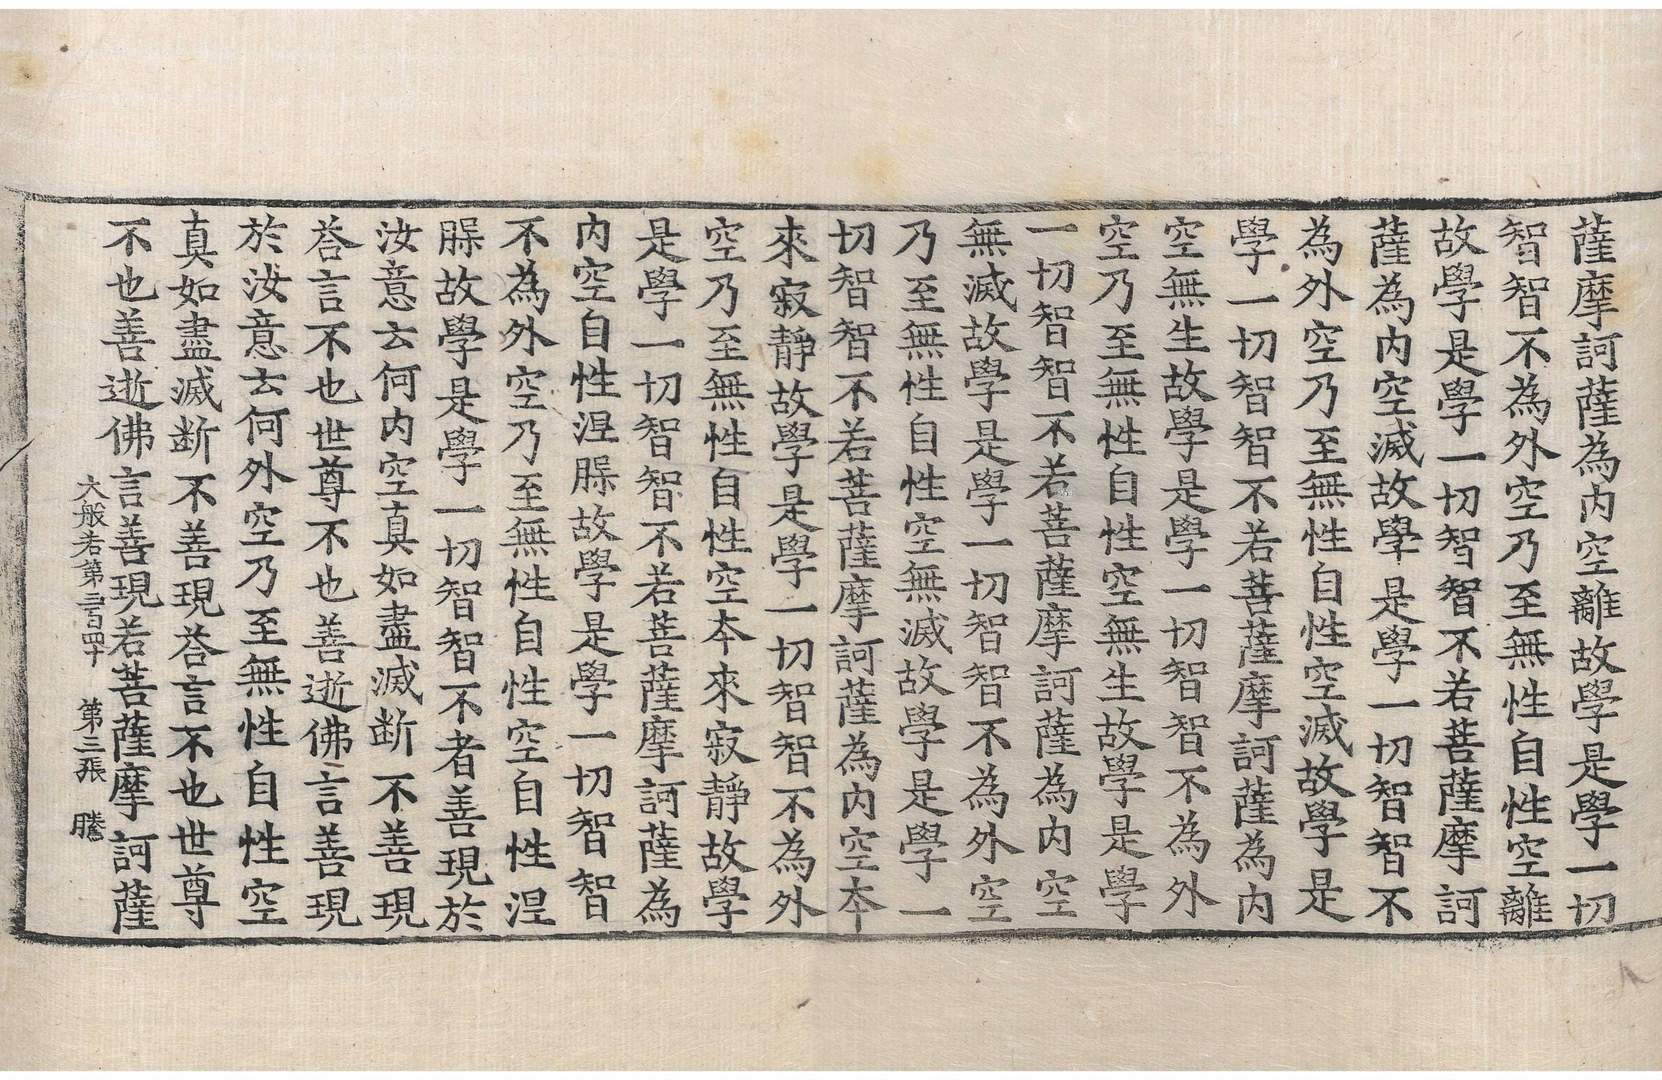 薩摩訶薩為内空離故學是學一切
智智不為外空乃至無性自性空離
故學是學一切智智不若菩薩摩訶
薩為内空滅故學是學一切智智不
為外空乃至無性自性空滅故學是
學一切智智不若菩薩摩訶薩為内
空無生故學是學一切智智不為外
空乃至無性自性空無生故學是學
一切智智不若菩薩摩訶薩為内空
無滅故學是學一切智智不為外空
乃至無性自性空無滅故學是學一
切智智不若菩薩摩訶薩為内空本
來寂靜故學是學一切智智不為外
空乃至無性自性空本來寂靜故學
是學一切智智不若菩薩摩訶薩為
内空自性涅槃故學是學一切智智
不為外空乃至無性自性空涅
槃故學是學一切智智不者善現於
汝意云何内空真如盡滅断不善現
荅言不也世尊不也善逝佛言善現
於汝意云何外空乃至無性自性空
真如盡滅断不善現荅言不也世尊
不也善逝佛言善現若菩薩摩訶薩
大般若第三百四十 第三張 騰